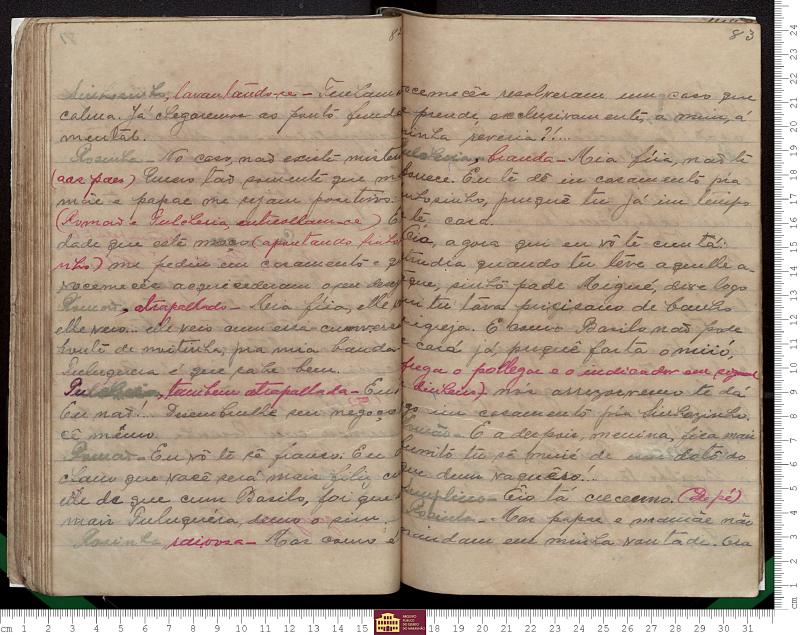 82
Sinhosinho, lavantando-se - Tenham
calma. Já chegaremos ao ponto funda
mental.
Rosinha - No caso, não existe misté
(aos paes) Quero tão somente que m
mãe e papae me sejam positivos.
(Romão e Pulcheria, entreolham-se) É
dade que este moço (apontando Sinho
sinho) me pediu em casamento e q
vocemecês acquiesceram o seu desej
Romão, atrapalhado - Mia fiia, elle
elle veio... ele veio cum essa cunversa
honte de noitinha, pra mia banda
Puluquera é que sabe bem.
Pulcheria, tambem atrapalhada - Eu
Eu não!... Desembuche seu negoço
cê mêmo.
Romão - Eu vô te sê franco. Eu
cham que você será mais filiz co
ele do que cum Basilo, foi que
mais Puluquéra, demo o sim.
Rosinha raivosa - Mas como é
83
ocemecês resolveram um caso que
e prende, exclusivamente, a mim, á
inha reveria?!...
ulcheria, branda - Mia fiia, não te
borrece. Eu te dô in casamento pra
nhosinho, pruquê tu já im tempo
e tê casa.
Óia, agora qui eu vô te cuntá:
trudia quando tu teve aquelle a-
que, sinhô pade Migué, dixe logo
ui tu tava pricisano de banho
igreja. E como Basilo não pode
e casá já, pruquê farta o mió,
frega o pollegar e o indicador em signal
e dinheiro) nós arrezorvemo te dá
go im casamento pra Sinhozinho.
Romão - E a depois, menina, fica mais
bunito tu sê muié de um dotô do
que dum vaquêro!...
Simplicio - Eio tá cieceno. (De pé)
Rosinha - Mas papae e mamãe não
mandam em minha vontade. Era